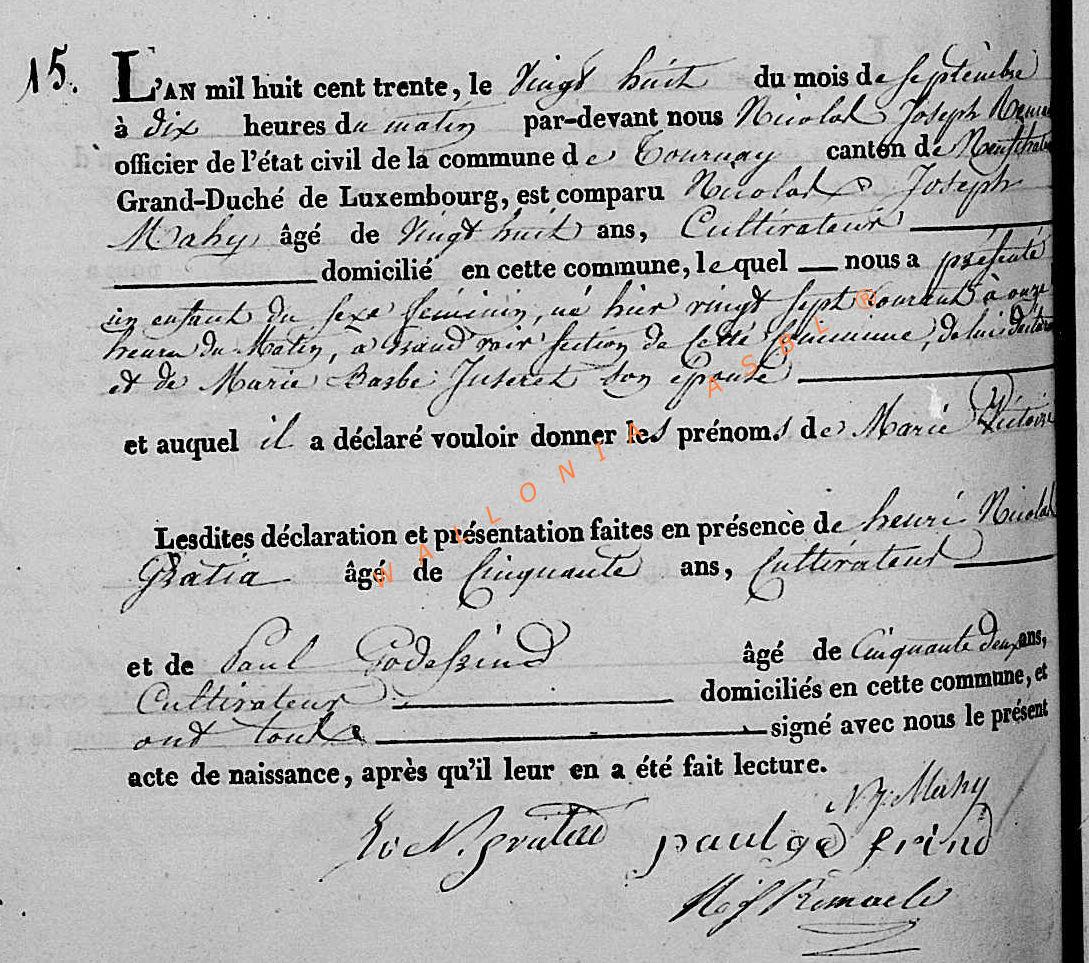 15.
L'AN mil huit cent trente, le Vingt huit du mois de septembre
à dix heures du matin par-devant nous Nicolas Joseph
officier de l'état civil de la commune de Tournay canton de
Grand-Duché de Luxembourg, est comparu Nicolas Joseph
Mahy âgé de Vingt huit ans, Cultivateur
domicilié en cette commune, lequel nous a présenté
un enfant du sexe féminin, né hier vingt sept courant à onze
heures du Matin, à Grand voir section de cette commune, de lui déclarant
et de Marie Barbe Juseret son épouse
et auquel il a déclaré vouloir donner les prénoms de Marie Victoire
Lesdites déclaration et présentation faites en présence de henri Nicolas
Gratia âgé de Cinquante ans, Cultivateur
et de Paul Godefrind âgé de Cinquante deux ans,
Cultivateur domiciliés en cette commune, et
ont tous signé avec nous le présent
acte de naissance, après qu'il leur en a été fait lecture.
N. J. Mahy
paul god frind
WALLONIA ASBL ®